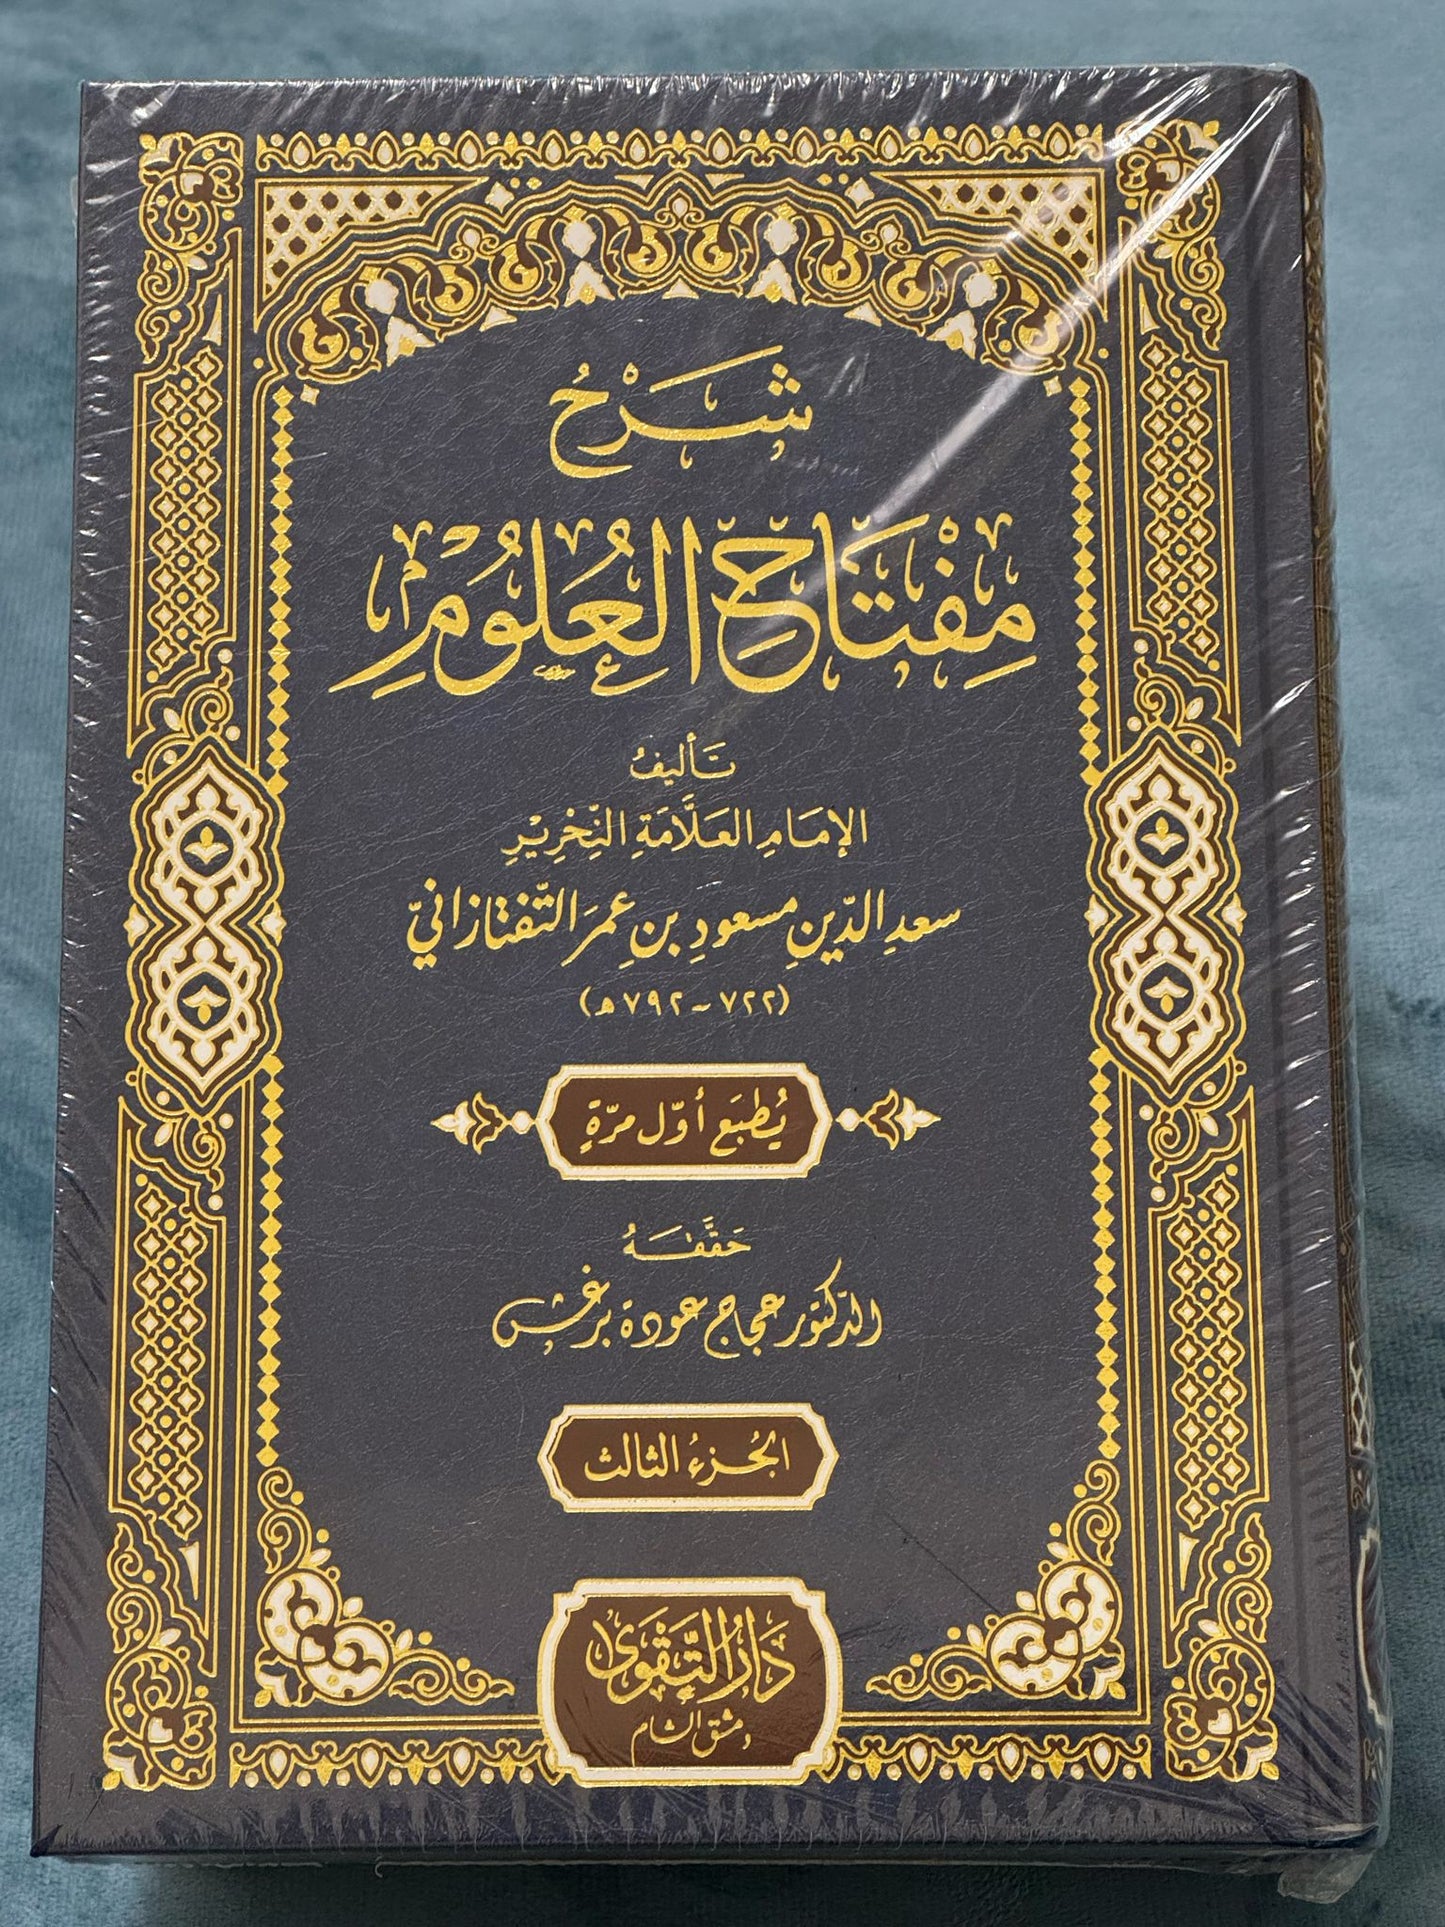 شَرْحُ
مِفْتَاحِ العُلُومِ
تَأليفُ
الإمَامِ العَلَّامَةِ النِّحْرِيْرِ
سعدِ الدِّينِ مسعودِ بنِ عمرَ التّفتازانيِّ
(٧٢٢ ~ ٧٩٢ ه)
يُطبَع أوّل مرّةٍ
حَقَّقَهُ
الدّكتور عجاج عودة برغش
الجُزءُ الثالث
دَارُ التَّقوَى
دمشق الشام